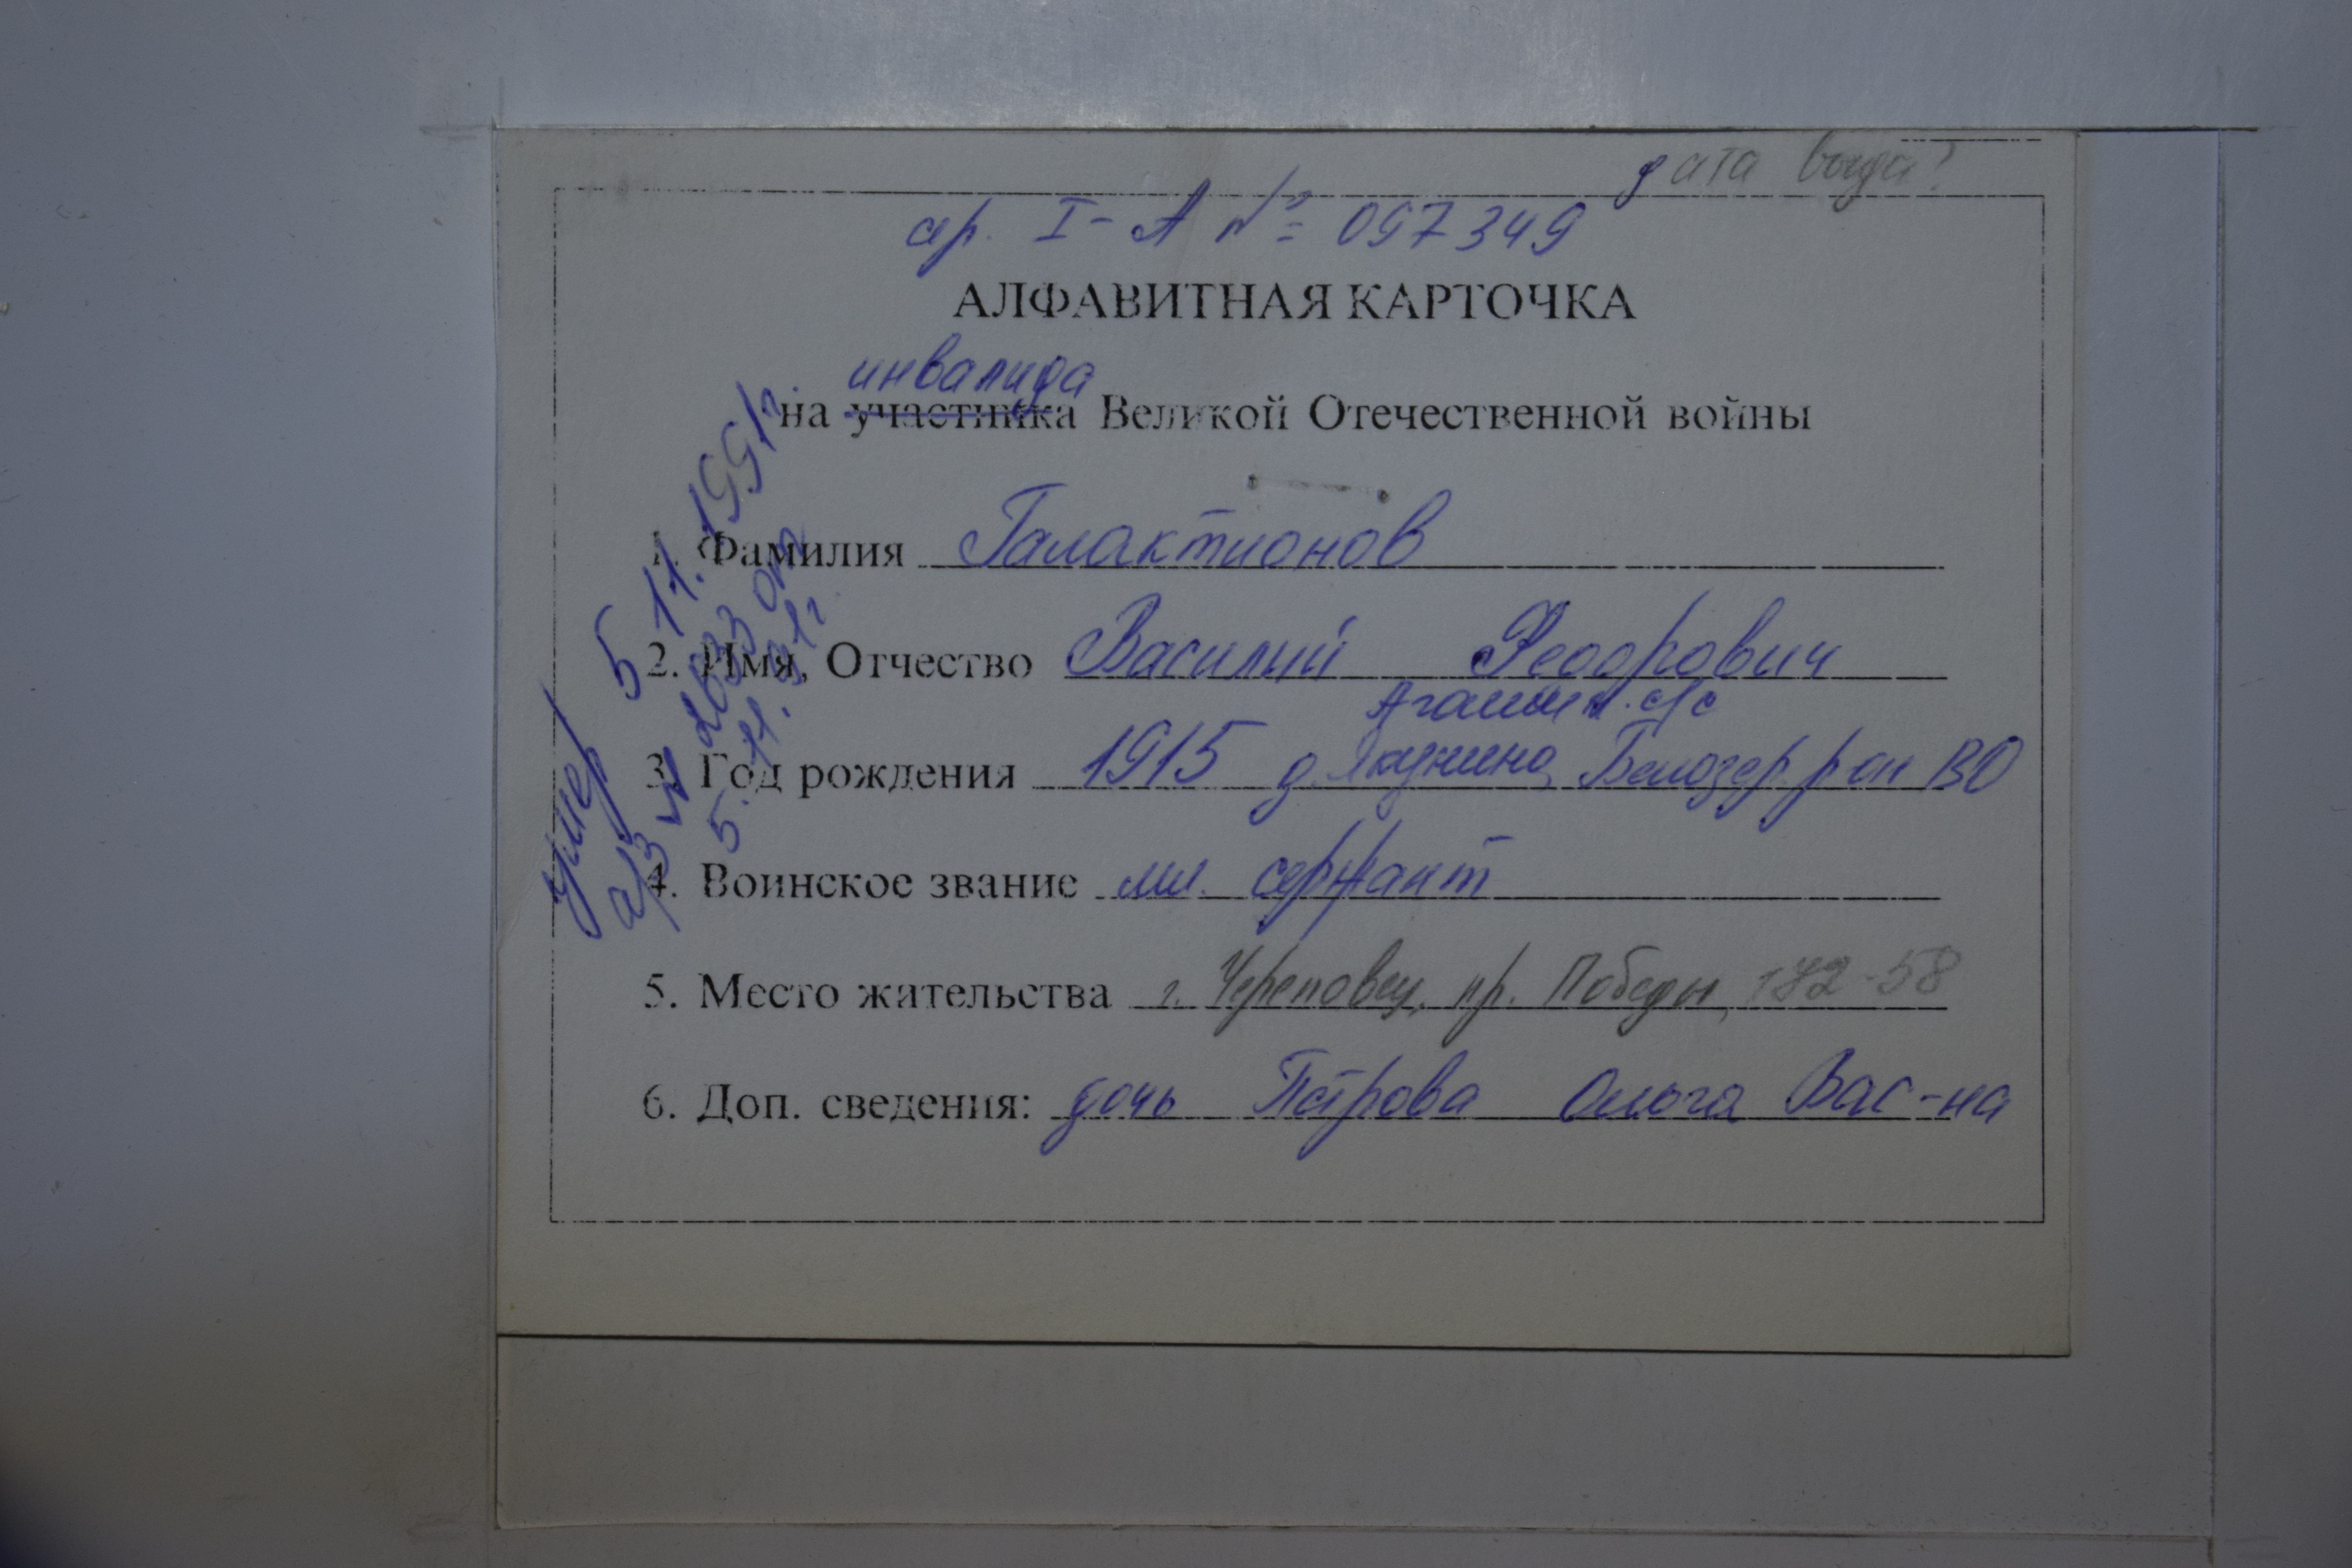 дата выда?
сер. I-А № 097349
АЛФАВИТНАЯ КАРТОЧКА
инвалида
на участника Великой Отечественной войны
1. Фамилия Галактионов
2. Имя, Отчество Василий Феодорович
с/с
3. Год рождения 1915 д. Якунино, Белозер. р-он ВО
4. Воинское звание мл. сержант
5. Место жительства г. Череповец, пр. Победы, 142-58
6. Доп. сведения: дочь Петрова Ольга Вас-на
умер 5 11. 1991г.
а/з от
5. 11. 91г